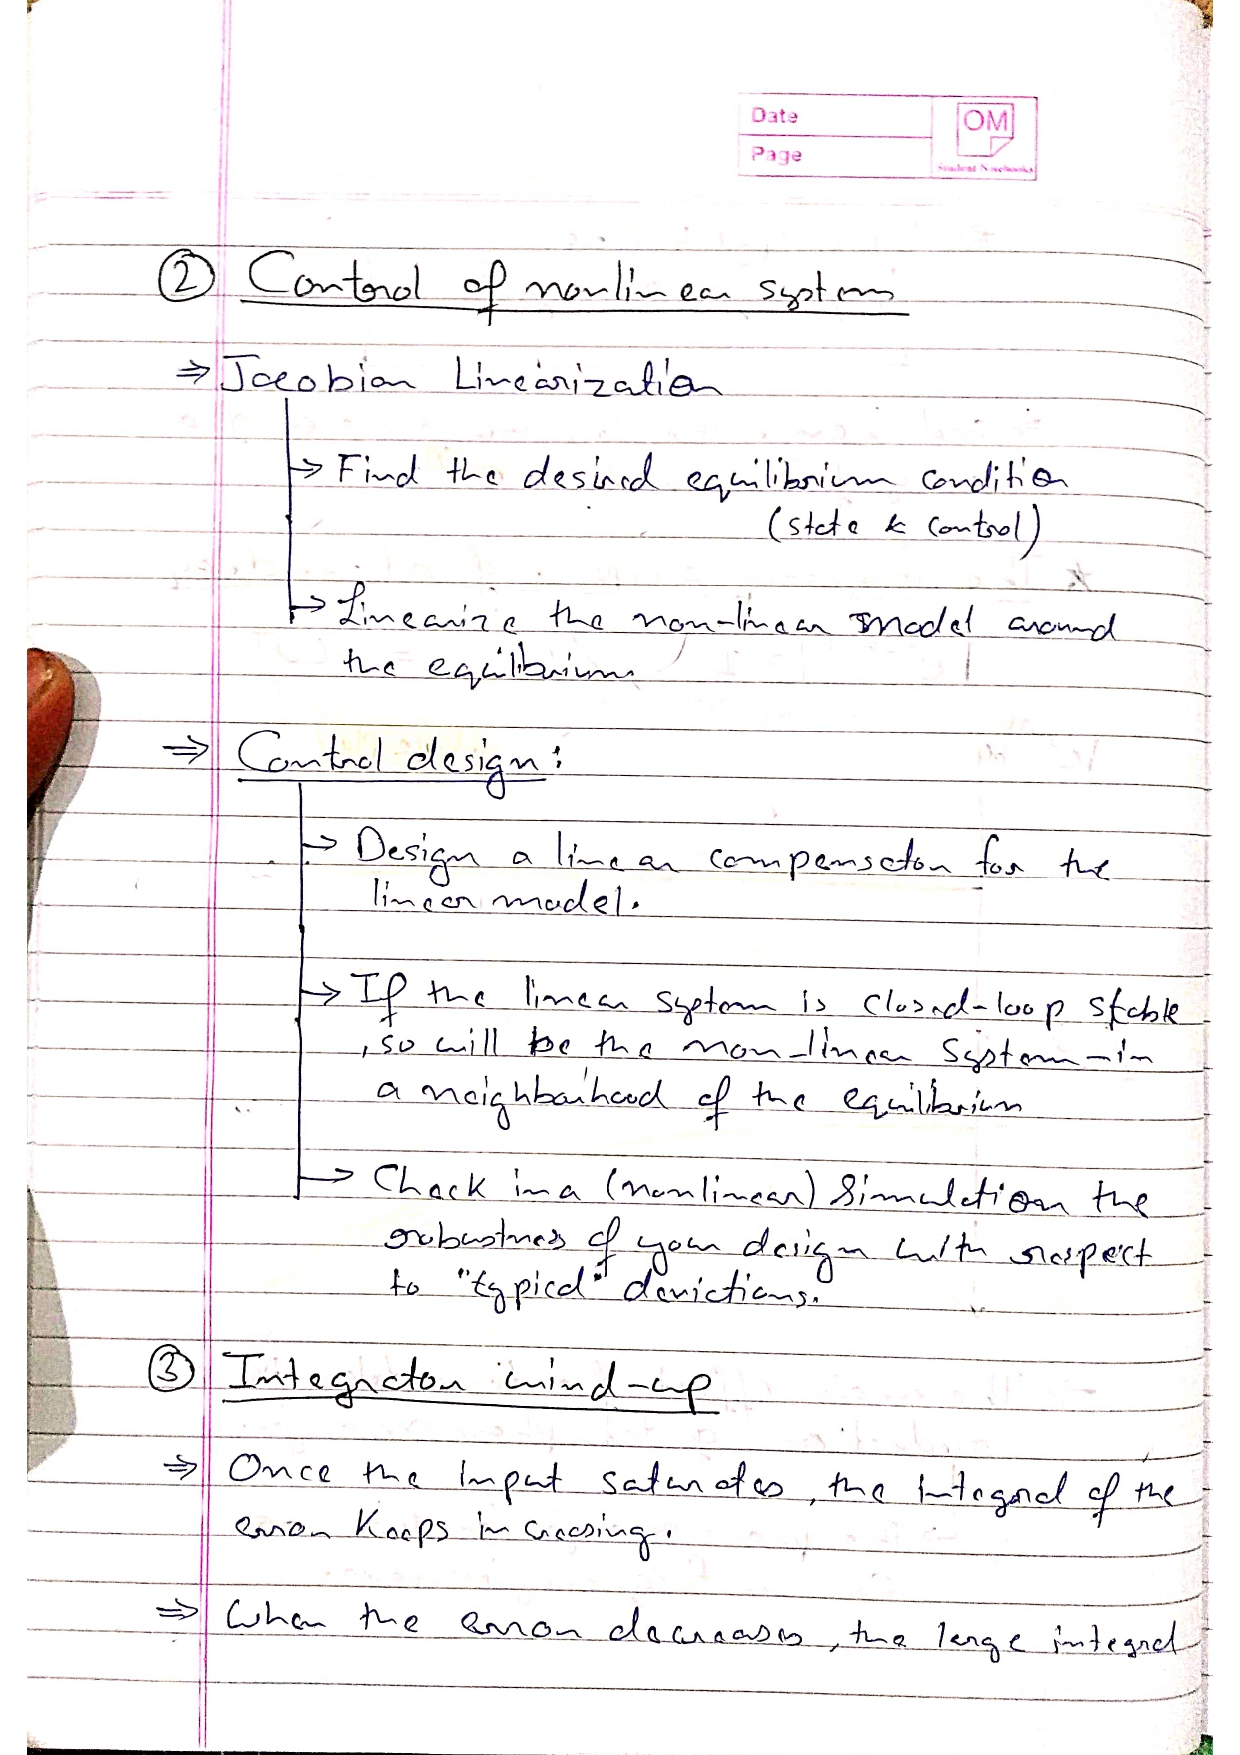 Date
Page
OM
Student Notebooks
② Control of nonlinear system
⇒ Jacobian Linearization
→ Find the desired equilibrium condition
(state & control)
→ Linearize the non-linear model around
the equilibrium
⇒ Control design:
→ Design a linear compensator for the
linear model.
→ If the linear system is closed-loop stable
, so will be the non-linear system - in
a neighborhood of the equilibrium
→ Check in a (nonlinear) simulation the
robustness of your design with respect
to "typical" deviations.
③ Integrator wind-up
⇒ Once the input saturates, the integral of the
error keeps increasing.
⇒ When the error decreases, the large integral